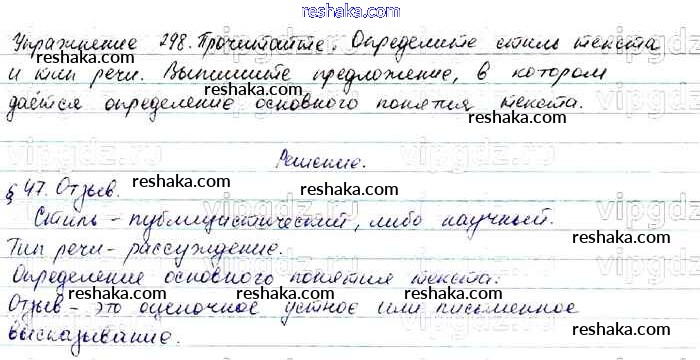 reshaka.com
Упражнение 298. Прочитайте. Определите стиль текста
и тип речи. Выпишите предложение, в котором
даётся определение основного понятия текста.
reshaka.com reshaka.com reshaka.com
vipgdz.ru vipgdz.ru
Решение.
§ 47. Отзыв.
reshaka.com reshaka.com reshaka.com
Стиль – публицистический, либо научный.
Тип речи – рассуждение.
reshaka.com reshaka.com
Определение основного понятия текста:
reshaka.com reshaka.com reshaka.com
Отзыв – это оценочное устное или письменное
высказывание.
reshaka.com reshaka.com